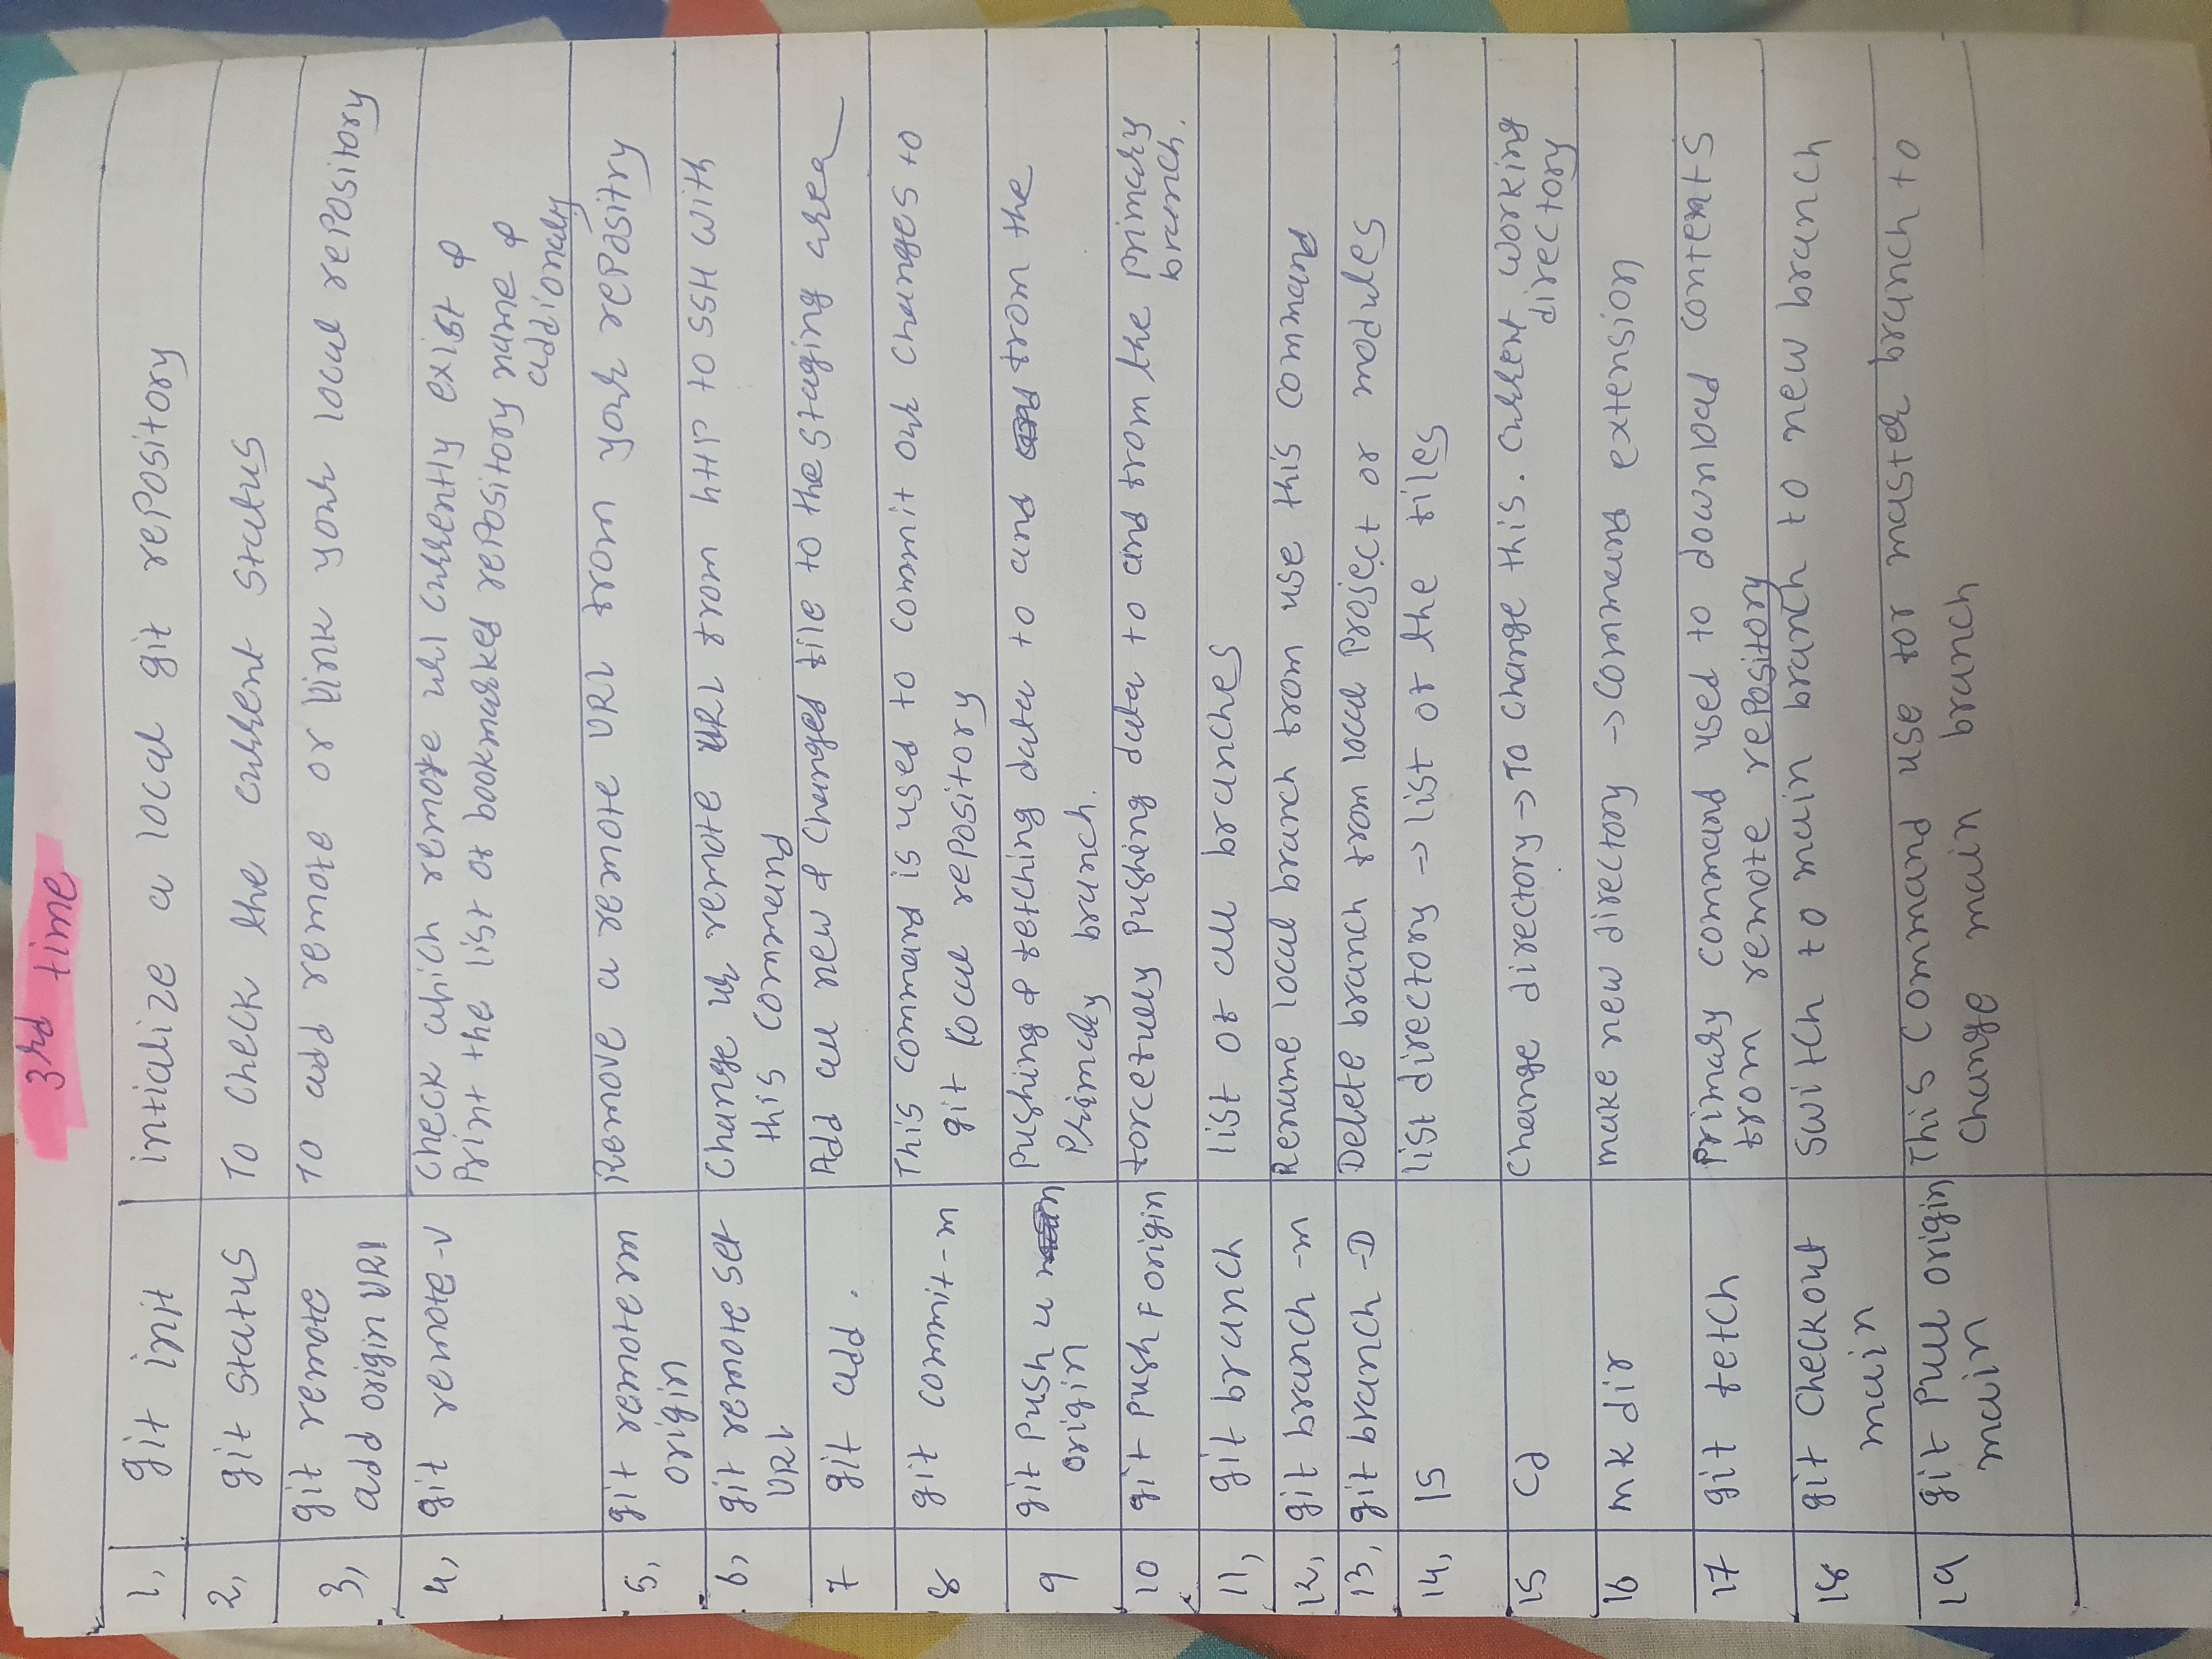 3rd time
1, git init intialize a local git repository
2, git status To check the current status
3, git remote To add remote or link your local repository
add origin URl
4, git remote -v check which remote url currently exist &
Print the list of bookmarked repository name &
addionaly
5, git remote rm Remove a remote URL from your repositry
origin
6, git remote set Change ur remote URL from http to SSH with
URL this command
7 git add . Add all new & changed file to the staging area
8 git commit -m This command is used to commit our changes to
git local repository
9 git Push u Pushing & fetching data to and from the
origin Primary branch.
10 git Push F origin forcefully Pushing data to and from the primary
branch.
11, git branch list of all branches
12, git branch -m Rename local branch from use this command
13, git branch -D Delete branch from local Project or modules
14, ls list directory → list of the files
15 cd Change directory → To change this. current working
directory
16 mk dir make new directory → command extension
17 git fetch Primary command used to download contents
from remote repository
18 git Checkout Switch to main branch to new branch
main
19 git Pull origin This command use for master branch to
main change main branch